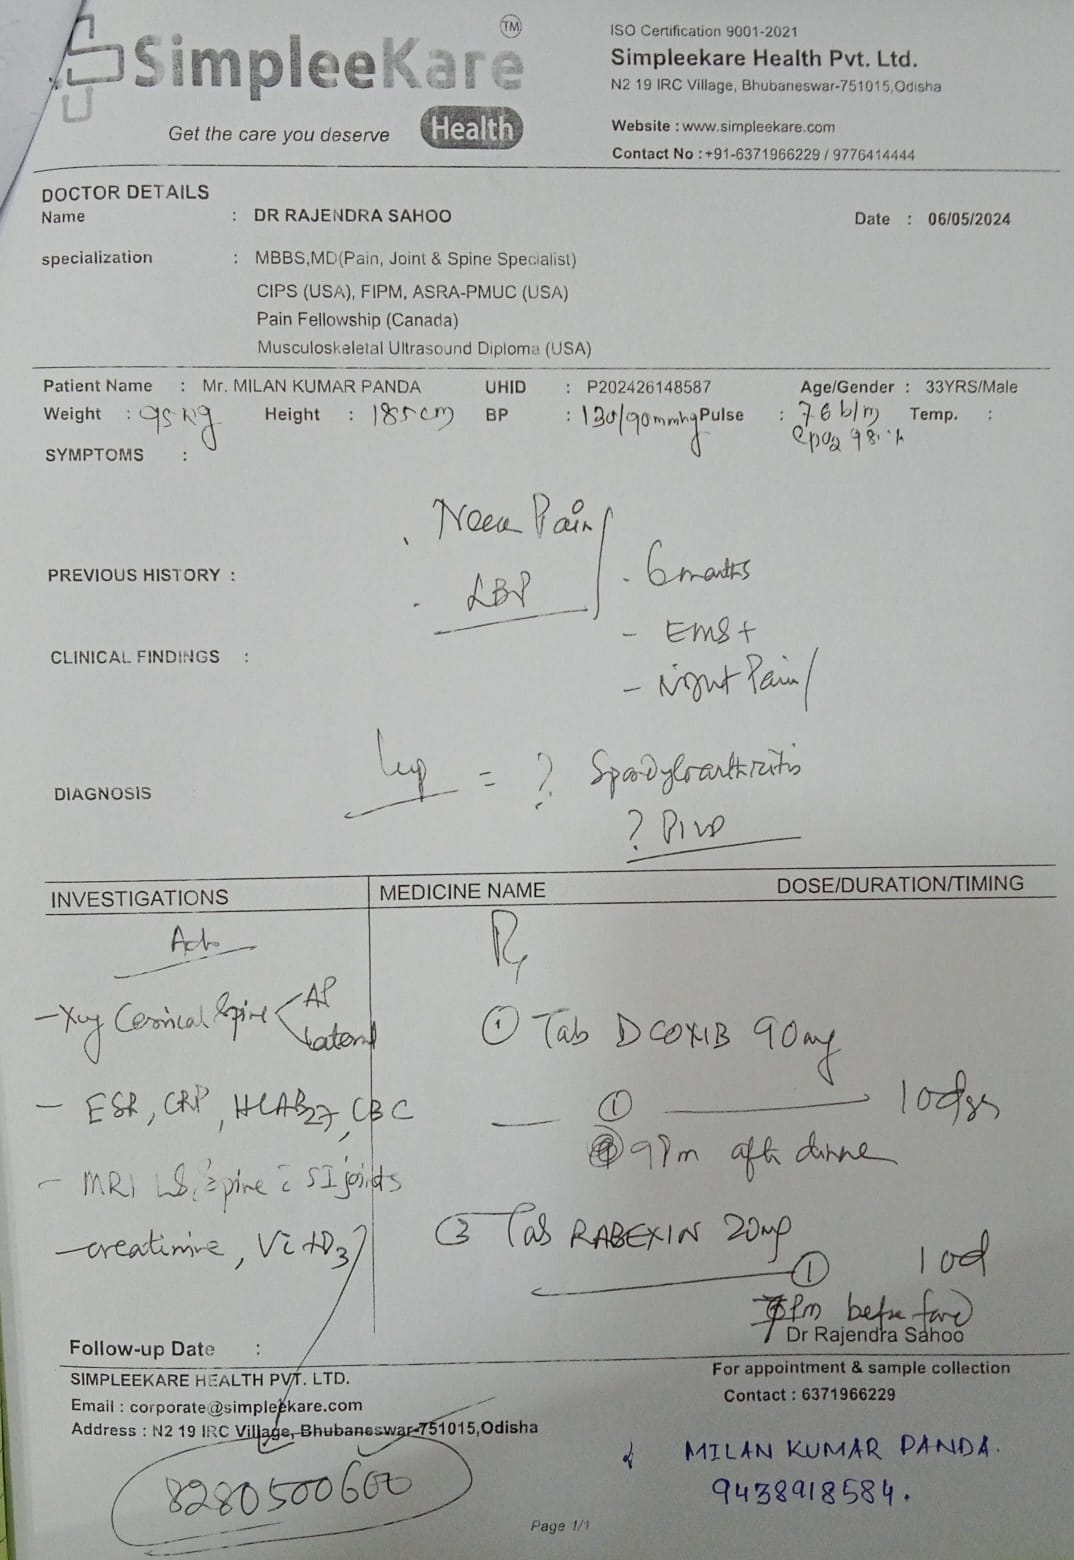 SimpleeKare TM
Get the care you deserve Health
ISO Certification 9001-2021
Simpleekare Health Pvt. Ltd.
N2 19 IRC Village, Bhubaneswar-751015,Odisha
Website : www.simpleekare.com
Contact No :+91-6371966229 / 9776414444
DOCTOR DETAILS
Name : DR RAJENDRA SAHOO Date : 06/05/2024
specialization : MBBS,MD(Pain, Joint & Spine Specialist)
CIPS (USA), FIPM, ASRA-PMUC (USA)
Pain Fellowship (Canada)
Musculoskeletal Ultrasound Diploma (USA)
Patient Name : Mr. MILAN KUMAR PANDA UHID : P202426148587 Age/Gender : 33YRS/Male
Weight : 95 Kg Height : 185 cm BP : 130/90mmhg Pulse : 76 b/m Temp. :
SYMPTOMS :
Neck Pain
PREVIOUS HISTORY : - 6 months
- LBP
- EMS +
CLINICAL FINDINGS :
- Night Pain
Imp = ? Spondyloarthritis
DIAGNOSIS
? PIVD
INVESTIGATIONS MEDICINE NAME DOSE/DURATION/TIMING
Adv
Rx
- Xray Cervical Spine < AP
Lateral
① Tab DCOXIB 90mg
- ESR, CRP, HLAB27, CBC
① 10days
@ 9 Pm after dinner
- MRI LS Spine c SI joints
② Tab RABEXIN 20mg
- creatinine, Vit D3
① 10d
Pm before food
Dr Rajendra Sahoo
Follow-up Date :
SIMPLEEKARE HEALTH PVT. LTD.
Email : corporate@simpleekare.com
Address : N2 19 IRC Village, Bhubaneswar-751015,Odisha
For appointment & sample collection
Contact : 6371966229
8280500600
MILAN KUMAR PANDA.
9438918584.
Page 1/1